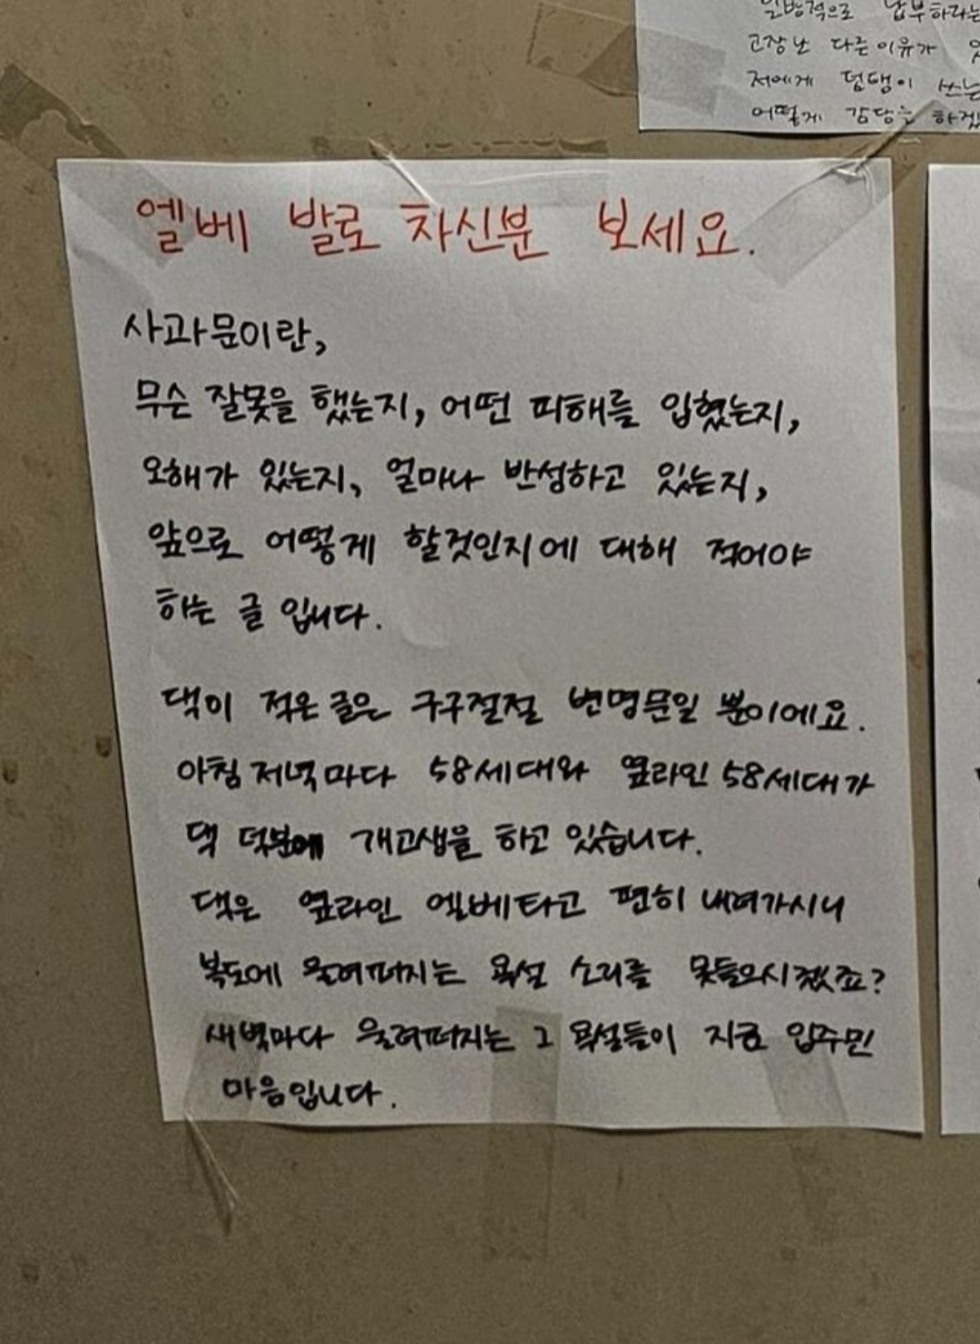 일방적으로 납부하라는
고장난 다른이유가
저에게 덤탱이 쓰는
어떻게 감당을 하겠
엘베 발로 차신분 보세요.
사과문이란,
무슨 잘못을 했는지, 어떤 피해를 입혔는지,
오해가 있는지, 얼마나 반성하고 있는지,
앞으로 어떻게 할것인지에 대해 적어야
하는 글 입니다.
댁이 적은 글은 구구절절 변명문일 뿐이에요.
아침저녁마다 58세대와 옆라인 58세대가
댁 덕분에 개고생을 하고 있습니다.
댁은 옆라인 엘베타고 편히 내려가시니
복도에 울려퍼지는 욕설 소리를 못들으시겠죠?
새벽마다 울려퍼지는 그 욕설들이 지금 입주민
마음입니다.